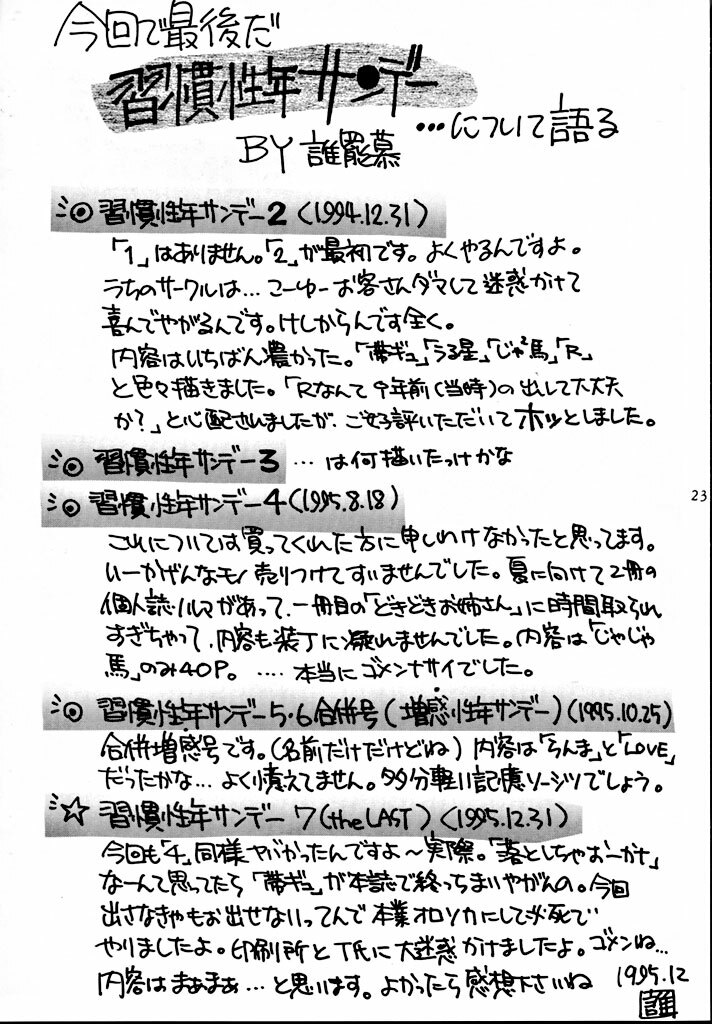 今回で最後だ
習慣性年サンデー
…について語る
BY 誰罷慕
◎ 習慣性年サンデー2 (1994.12.31)
「1」はありません。「2」が最初です。よくやるんですよ。
うちのサークルは…こーゆーお客さんダマして迷惑かけて
喜んでやがるんです。けしからんです全く。
内容はいちばん濃かった。「帯ギュ」「うる星」「じゃ²馬」「R」
と色々描きました。「Rなんて9年前(当時)の出して大丈夫
か?」と心配されましたが、ご好評いただいてホッとしました。
◎ 習慣性年サンデー3 …は何描いたっけかな
◎ 習慣性年サンデー4 (1995.8.18)
23
これについては買ってくれた方に申しわけなかったと思ってます。
いーかげんなモノ売りつけてすいませんでした。夏に向けて2冊の
個人誌ノルマがあって、一冊目の「どきどきお姉さん」に時間取られ
すぎちゃって、内容も装丁に凝れませんでした。内容は「じゃじゃ
馬」のみ40P。…. 本当にゴメンナサイでした。
◎ 習慣性年サンデー5・6合併号(増感性年サンデー)(1995.10.25)
合併増感号です。(名前だけだけどね) 内容は「らんま」と「LOVE」
だったかな…よく憶えてません。多分軽い記憶ソーシツでしょう。
☆ 習慣性年サンデー 7(the LAST) (1995.12.31)
今回も「4」同様ヤバかったんですよ〜実際。「落としちゃおーかナ」
なーんて思ってたら「帯ギュ」が本誌で終っちまいやがんの。今回
出さなきゃもお出せないってんで本業オロソカにして必死で
やりましたよ。印刷所とT氏に大迷惑かけましたよ。ゴメンね…
内容はまぁまぁ…と思います。よかったら感想下さいね
1995.12
誰